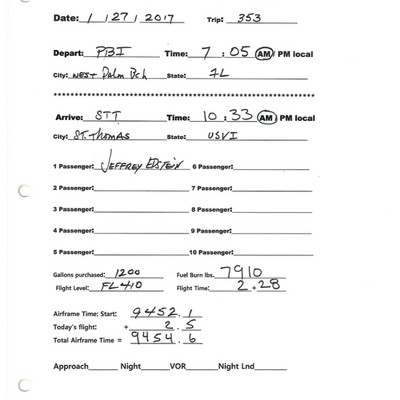 Date: 1 / 27 / 2017 Trip: 353
Depart: PBI Time: 7 : 05 AM / PM local
City: West Palm Bch State: FL
****************************************
Arrive: STT Time: 10 : 33 AM / PM local
City: St. Thomas State: USVI
1 Passenger: Jeffrey Epstein 6 Passenger:
2 Passenger: 7 Passenger:
3 Passenger: 8 Passenger:
4 Passenger: 9 Passenger:
5 Passenger: 10 Passenger:
Gallons purchased: 1200 Fuel Burn lbs. 7910
Flight Level: FL410 Flight Time: 2 + 28
Airframe Time: Start: 9452.1
Today's flight: + 2.5
Total Airframe Time = 9454.6
Approach Night VOR Night Lnd